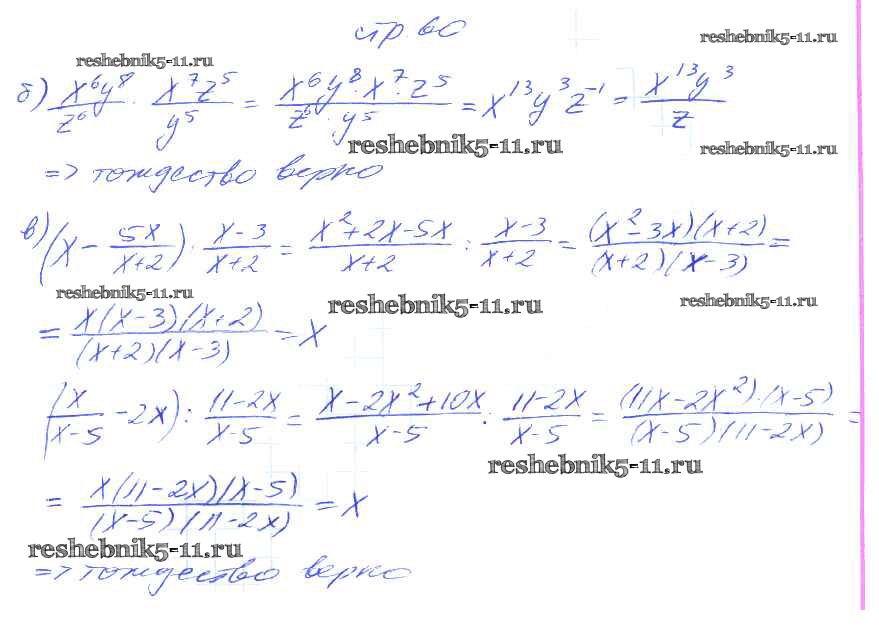 стр. 60
reshebnik5-11.ru
reshebnik5-11.ru
б) x⁶y⁸/z⁶ · x⁷z⁵/y⁵ = x⁶y⁸·x⁷·z⁵/z⁶·y⁵ = x¹³y³z⁻¹ = x¹³y³/z
reshebnik5-11.ru
reshebnik5-11.ru
=> тождество верно
в) (x − 5x/x+2) · x−3/x+2 = x²+2x−5x/x+2 : x−3/x+2 = (x²−3x)(x+2)/(x+2)(x−3) =
reshebnik5-11.ru
reshebnik5-11.ru
reshebnik5-11.ru
= x(x−3)(x+2)/(x+2)(x−3) = x
(x/x−5 − 2x) : 11−2x/x−5 = x−2x²+10x/x−5 : 11−2x/x−5 = (11x−2x²)·(x−5)/(x−5)(11−2x) =
reshebnik5-11.ru
= x(11−2x)(x−5)/(x−5)(11−2x) = x
reshebnik5-11.ru
=> тождество верно